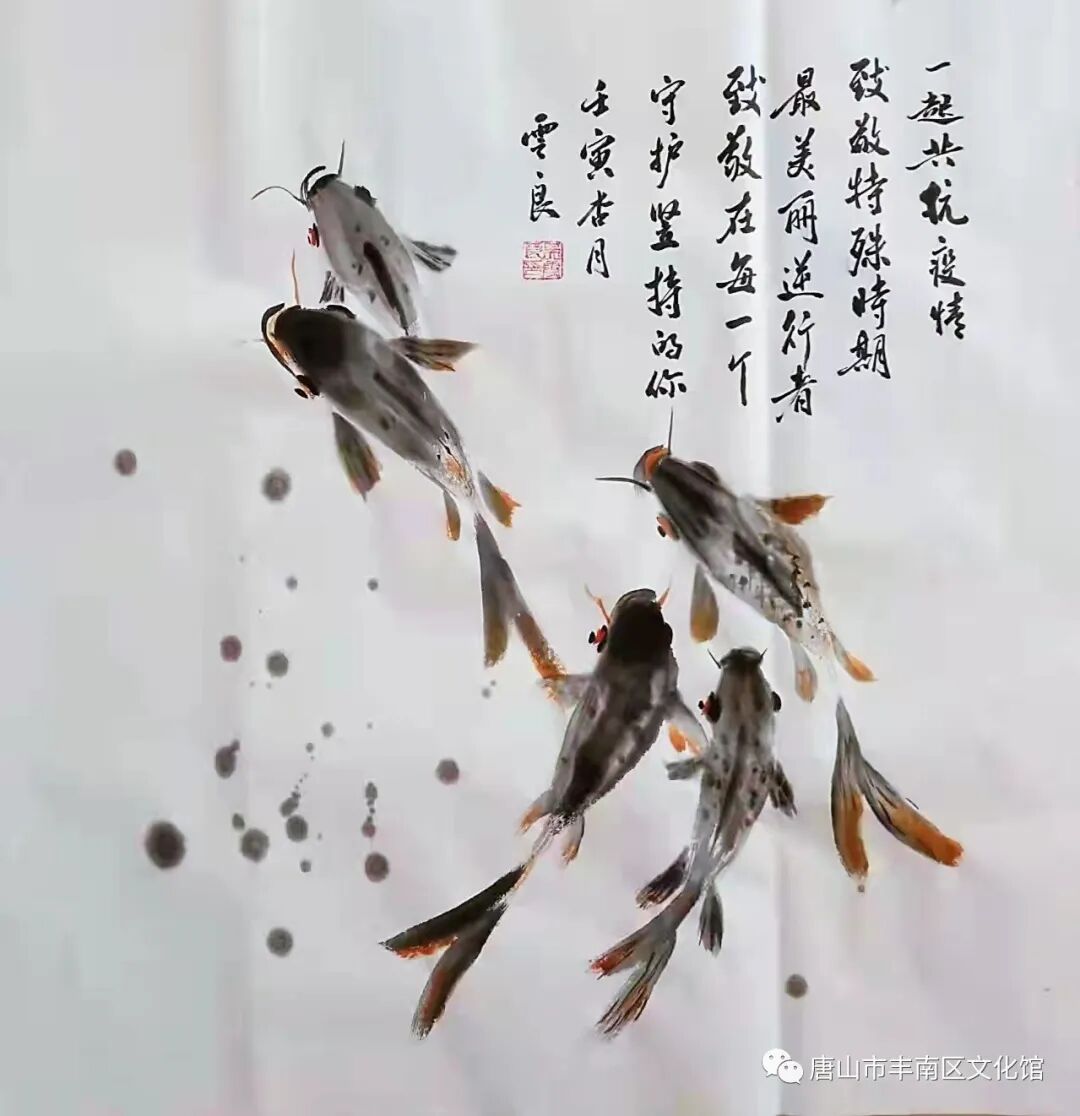 一起共抗疫情
致敬特殊時期
最美丽逆行者
致敬在每一个
守护坚持的你
壬寅杏月
雲良
唐山市丰南区文化馆